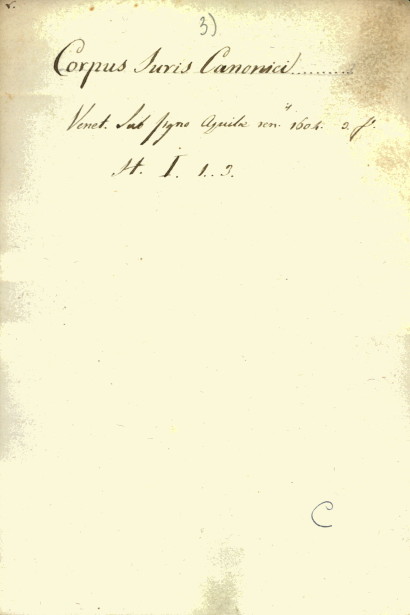 3)
Corpus Juris Canonici..........
Venet. Sub signo Aquilæ ren. 1604. 3. f.
H. I. 1..3.
C